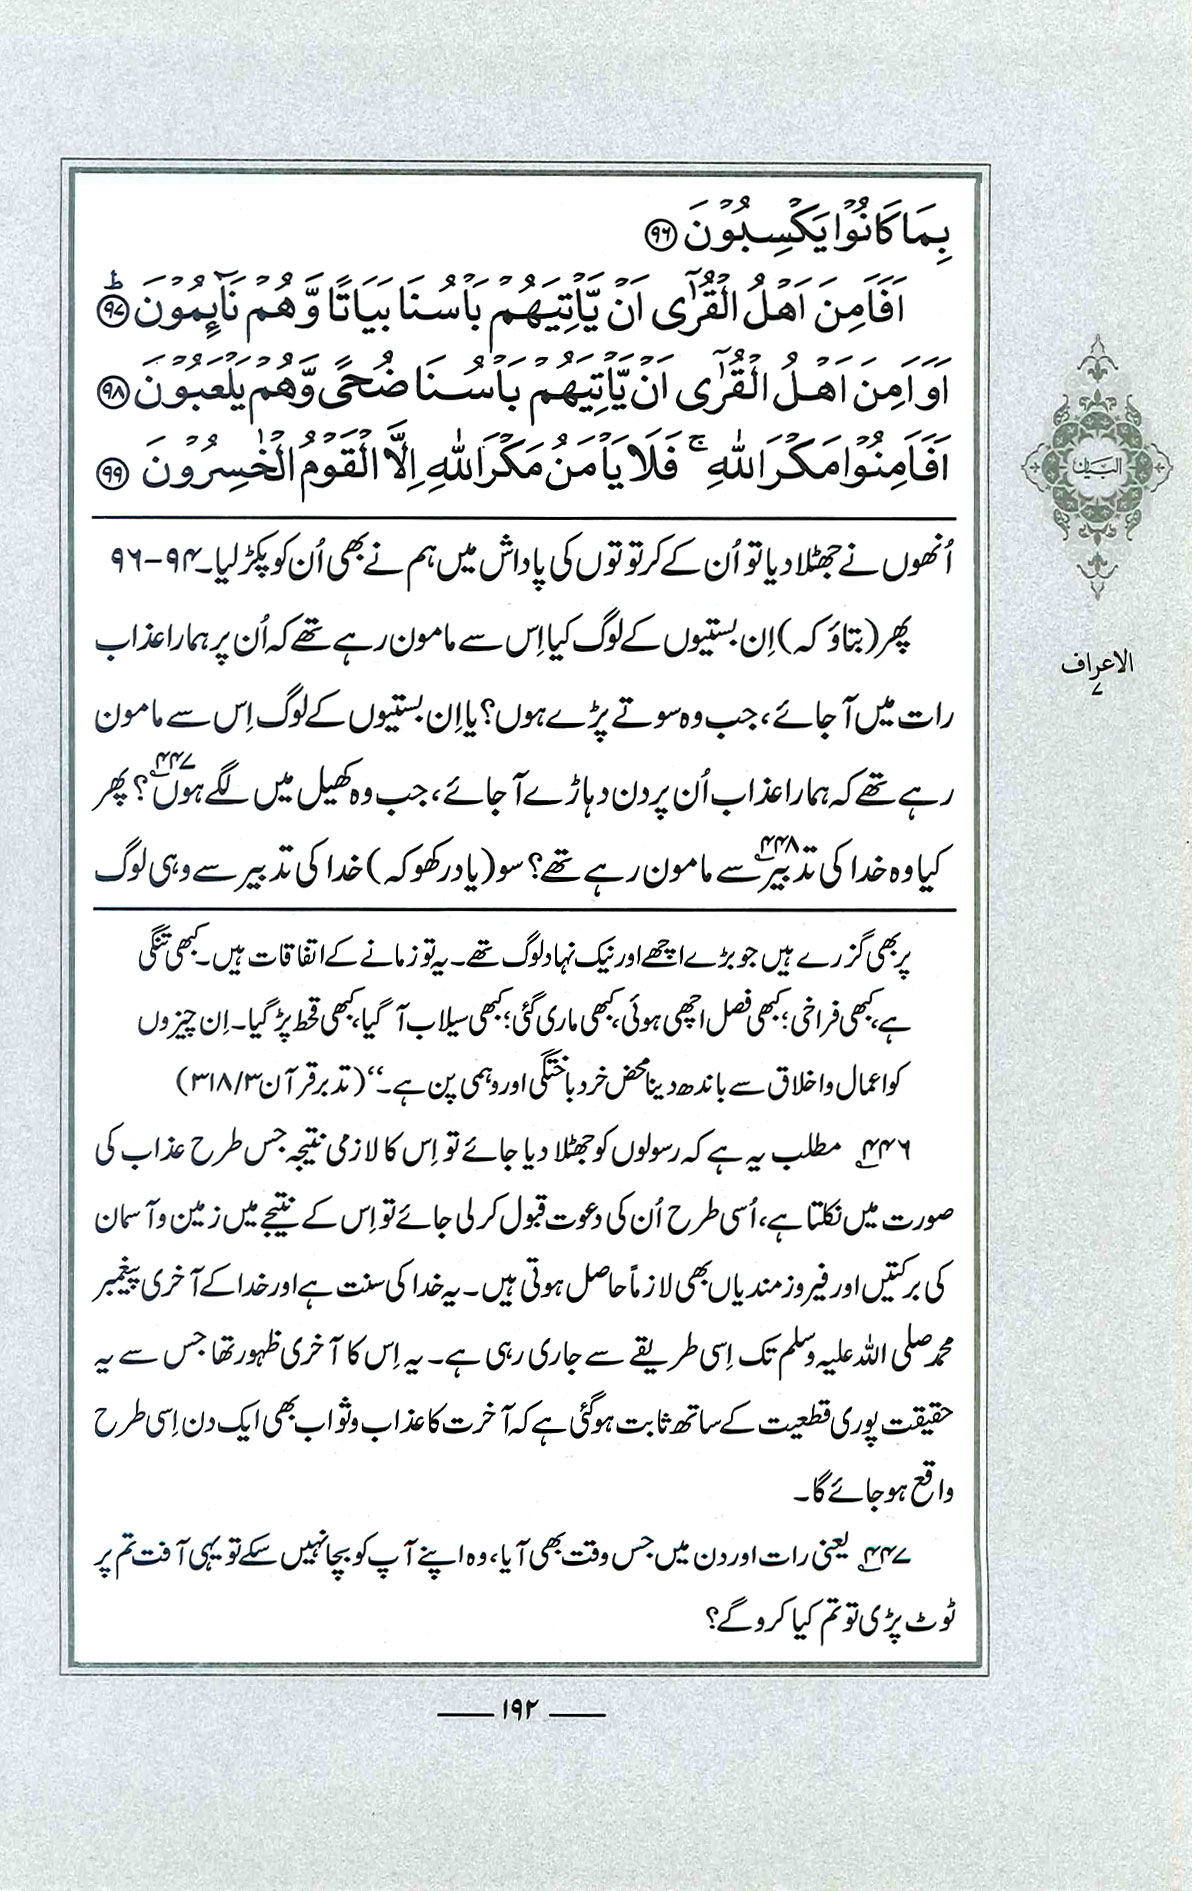 بِمَا كَانُوْا يَكْسِبُوْنَ ﴿۹۶﴾
اَفَاَمِنَ اَهْلُ الْقُرٰٓى اَنْ يَّاْتِيَهُمْ بَاْسُنَا بَيَاتًا وَّهُمْ نَآئِمُوْنَ ﴿۹۷﴾ؕ
اَوَاَمِنَ اَهْلُ الْقُرٰٓى اَنْ يَّاْتِيَهُمْ بَاْسُنَا ضُحًى وَّهُمْ يَلْعَبُوْنَ ﴿۹۸﴾
اَفَاَمِنُوْا مَكْرَ اللّٰهِ ۚ فَلَا يَاْمَنُ مَكْرَ اللّٰهِ اِلَّا الْقَوْمُ الْخٰسِرُوْنَ ﴿۹۹﴾
اُنھوں نے جھٹلا دیا تو اُن کے کرتوتوں کی پاداش میں ہم نے بھی اُن کو پکڑ لیا۔ ۹۴-۹۶
پھر (بتاؤ کہ) اِن بستیوں کے لوگ کیا اِس سے مامون رہے تھے کہ اُن پر ہمارا عذاب
رات میں آ جائے، جب وہ سوتے پڑے ہوں؟ یا اِن بستیوں کے لوگ اِس سے مامون
رہے تھے کہ ہمارا عذاب اُن پر دن دہاڑے آ جائے، جب وہ کھیل میں لگے ہوں۴۴۷؟ پھر
کیا وہ خدا کی تدبیر۴۴۸ سے مامون رہے تھے؟ سو (یاد رکھو کہ) خدا کی تدبیر سے وہی لوگ
پر بھی گزرے ہیں جو بڑے اچھے اور نیک نہاد لوگ تھے۔ یہ تو زمانے کے اتفاقات ہیں۔ کبھی تنگی
ہے، کبھی فراخی؛ کبھی فصل اچھی ہوئی، کبھی ماری گئی؛ کبھی سیلاب آ گیا، کبھی قحط پڑ گیا۔ اِن چیزوں
کو اعمال و اخلاق سے باندھ دینا محض خرد باختگی اور وہمی پن ہے۔‘‘ (تدبر قرآن ۳/ ۳۱۸)
۴۴۶ مطلب یہ ہے کہ رسولوں کو جھٹلا دیا جائے تو اِس کا لازمی نتیجہ جس طرح عذاب کی
صورت میں نکلتا ہے، اُسی طرح اُن کی دعوت قبول کر لی جائے تو اِس کے نتیجے میں زمین و آسمان
کی برکتیں اور فیروز مندیاں بھی لازماً حاصل ہوتی ہیں۔ یہ خدا کی سنت ہے اور خدا کے آخری پیغمبر
محمد صلی اللہ علیہ وسلم تک اِسی طریقے سے جاری رہی ہے۔ یہ اِس کا آخری ظہور تھا جس سے یہ
حقیقت پوری قطعیت کے ساتھ ثابت ہو گئی ہے کہ آخرت کا عذاب و ثواب بھی ایک دن اِسی طرح
واقع ہو جائے گا۔
۴۴۷ یعنی رات اور دن میں جس وقت بھی آیا، وہ اپنے آپ کو بچا نہیں سکے تو یہی آفت تم پر
ٹوٹ پڑی تو تم کیا کرو گے؟
البیان
الاعراف
۷
۱۹۲